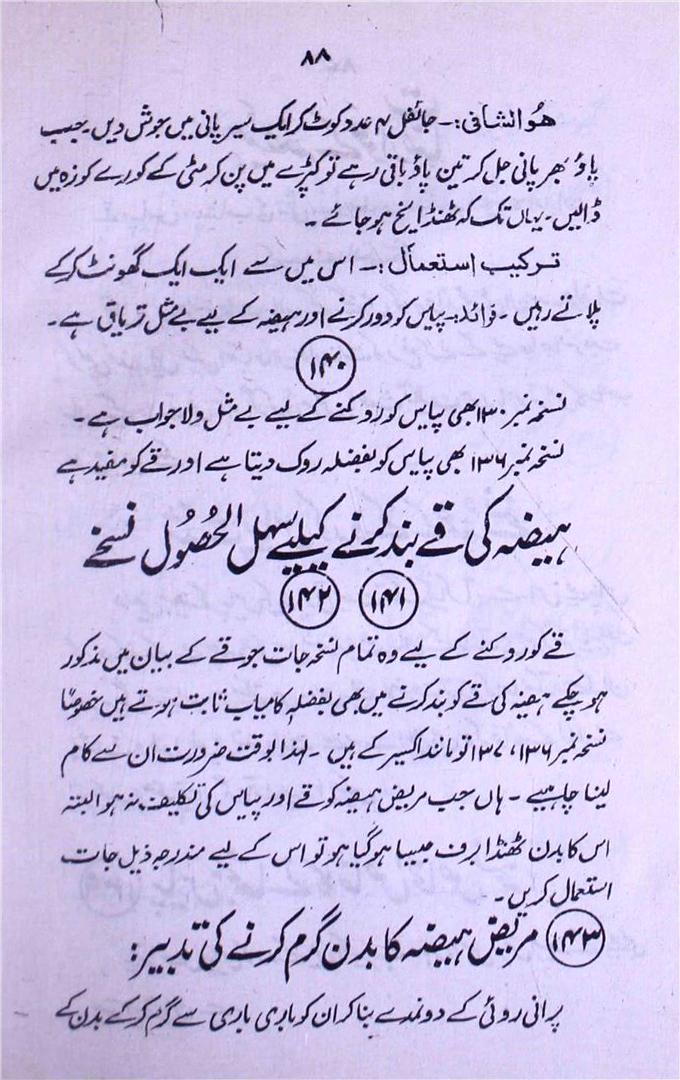 ۸۸
ھُوالشافی:۔ جائفل ۴ عدد کوٹ کر ایک سیر پانی میں جوش دیں۔ جب
پاؤ بھر پانی جل کر تین پاؤ باقی رہے تو کپڑے میں پن کہ مٹی کے کورے کوزہ میں
ڈالیں۔ یہاں تک کہ ٹھنڈا یخ ہو جائے۔
ترکیب استعمال:۔ اس میں سے ایک ایک گھونٹ کر کے
پلاتے رہیں۔ فوائد:۔ پیاس کو دور کرنے اور ہیضہ کے لیے بے مثل تریاق ہے۔
۱۴۰
نسخہ نمبر ۱۳۰ بھی پیاس کو روکنے کے لیے بے مثل ولاجواب ہے۔
نسخہ نمبر ۱۳۶ بھی پیاس کو بفضلہ روک دیتا ہے اور قے کو مفید ہے
ہیضہ کی قے بند کرنے کیلئے سہل الحصُول نسخے
۱۴۱ ۱۴۲
قے کو روکنے کے لیے وہ تمام نسخہ جات جو قے کے بیان میں مذکور
ہو چکے ہیضہ کی قے کو بند کرنے میں بھی بفضلہٖ کامیاب ثابت ہوتے ہیں خصوصاً
نسخہ نمبر ۱۳۶، ۱۳۷ تو مانند اکسیر کے ہیں۔ لہذا بوقت ضرورت ان سے کام
لینا چاہییے۔ ہاں جب مریض ہیضہ کو قے اور پیاس کی تکلیف نہ ہو البتہ
اس کا بدن ٹھنڈا برف جیسا ہو گیا ہو تو اس کے لیے مندرجہ ذیل جات
استعمال کریں۔
۱۴۳ مریض ہیضہ کا بدن گرم کرنے کی تدبیر:
پرانی روئی کے دو نمدے بنا کر ان کو باری باری سے گرم کر کے بدن کے